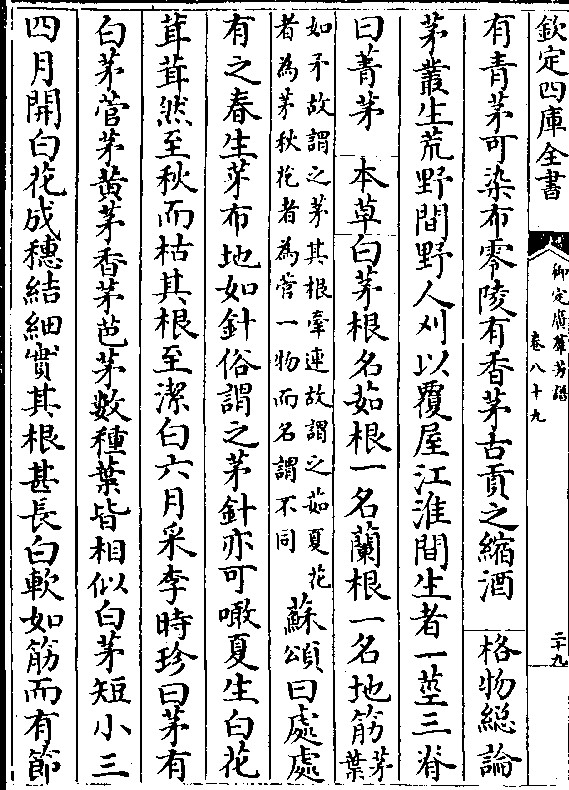 欽定四庫全書
御定廣羣芳譜
卷八十九
二十九
有青茅可染布零陵有香茅古貢之縮酒　格物總論
茅叢生荒野間野人刈以覆屋江淮間生者一莖三脊
曰菁茅　本草白茅根名茹根一名蘭根一名地筋茅葉
如矛故謂之茅其根牽連故謂之茹夏花
者為茅秋花者為菅一物而名謂不同
蘇頌曰處處
有之春生茅布地如針俗謂之茅針亦可噉夏生白花
茸茸然至秋而枯其根至潔白六月采李時珍曰茅有
白茅菅茅黃茅香茅芭茅數種葉皆相似白茅短小三
四月開白花成穗結細實其根甚長白軟如筋而有節